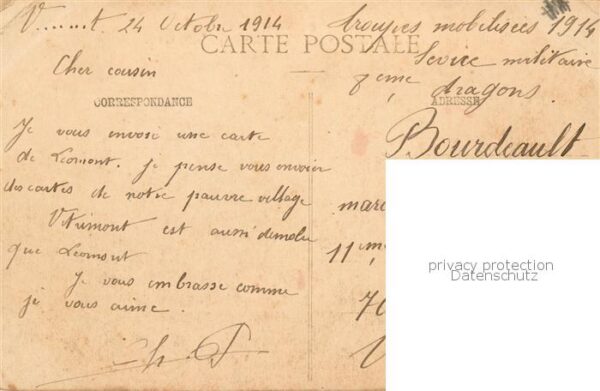 V......t, 24 Octobre 1914
troupes mobilisées 1914
CARTE POSTALE
Sevice militaire
Cher cousin
8ème dragons
CORRESPONDANCE
ADRESSE
Je vous envoie une carte
de Léomont. je pense vous envoier
des cartes de notre pauvre village
Vitrimont est aussi demolu
que Léomont
Je vous embrasse comme
je vous aime.
Ch. P
Bourdeault
11em
70
V
privacy protection
Datenschutz